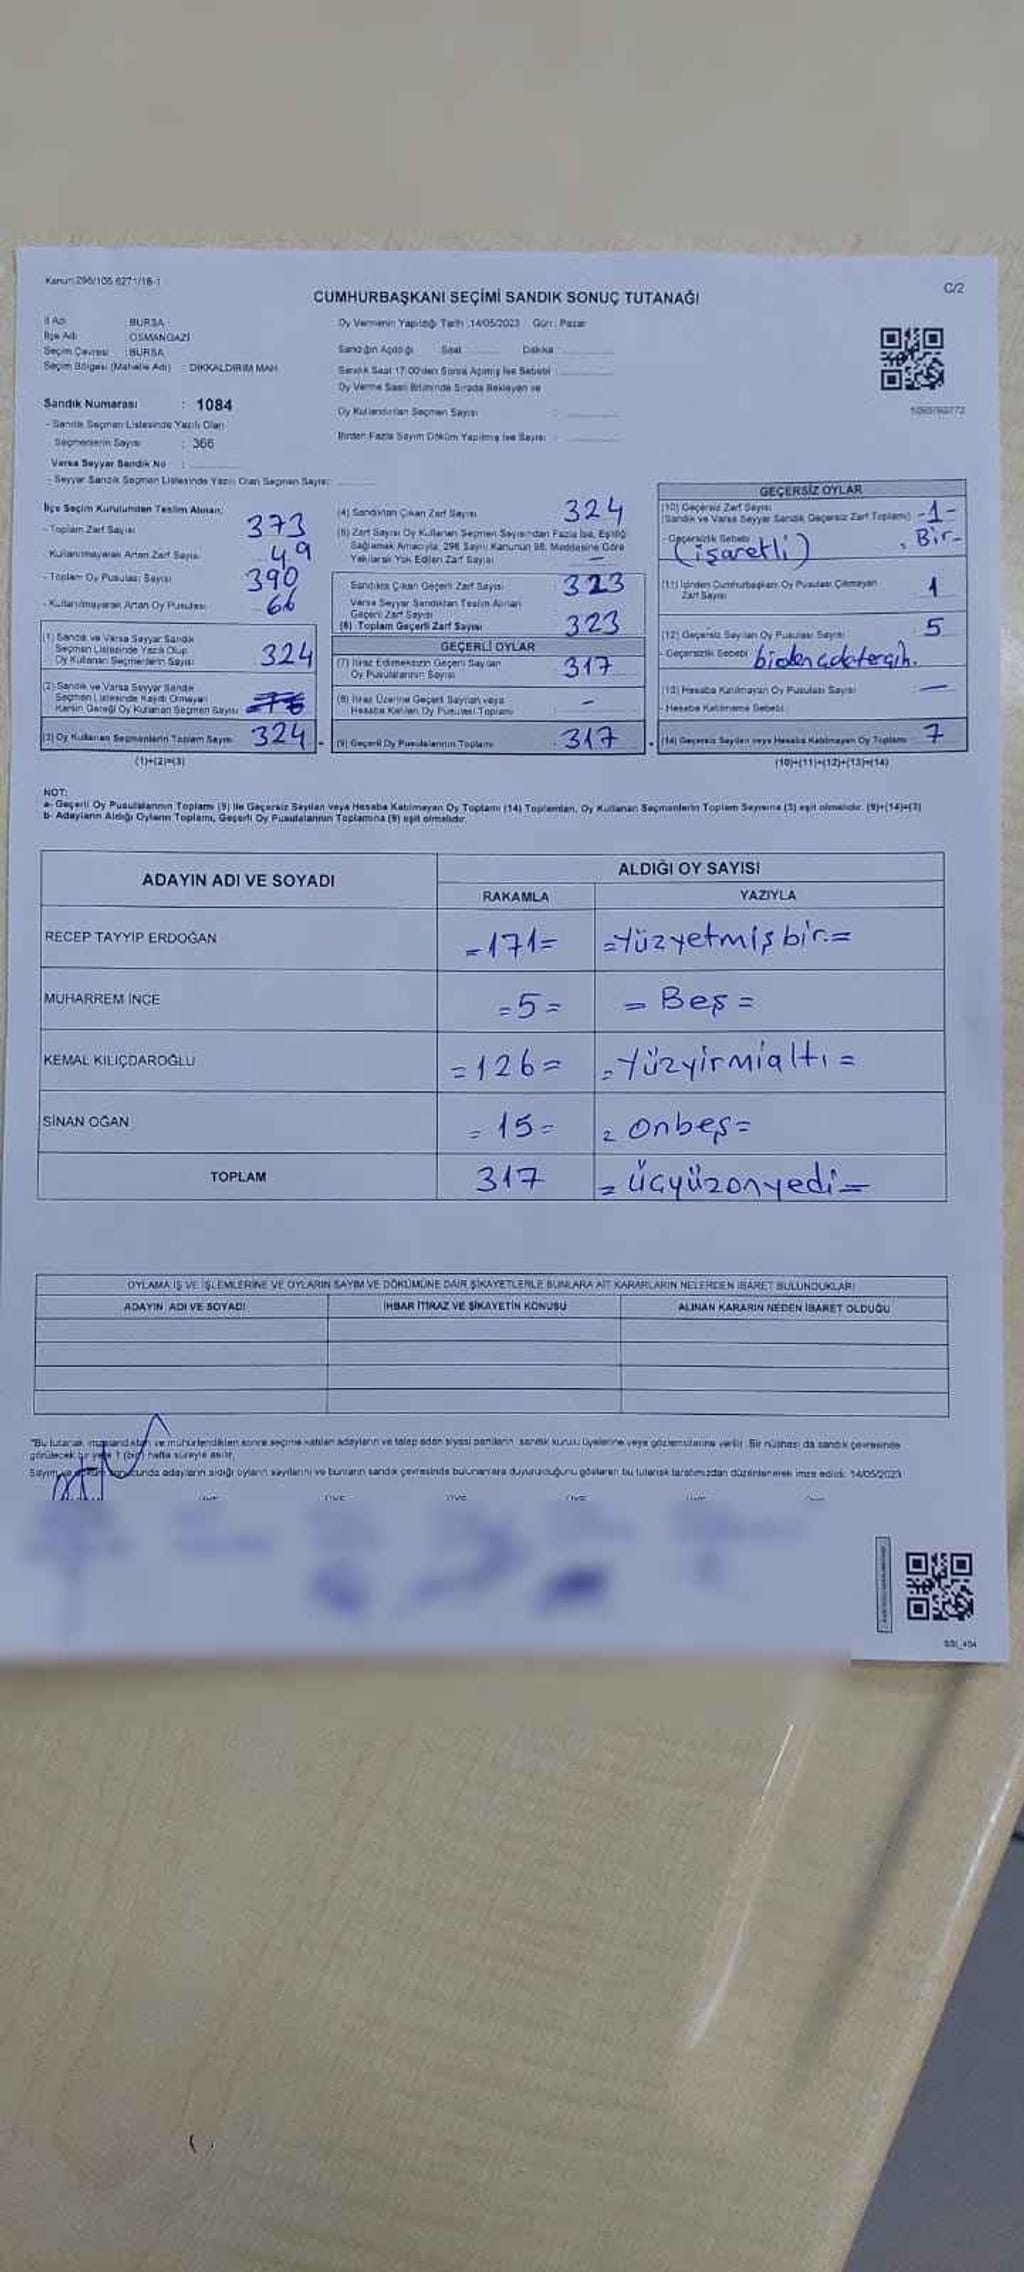 Kanun: 298/105 6271/18-1
C/2
CUMHURBAŞKANI SEÇİMİ SANDIK SONUÇ TUTANAĞI
İl Adı : BURSA
İlçe Adı : OSMANGAZİ
Seçim Çevresi : BURSA
Seçim Bölgesi (Mahalle Adı) : DİKKALDIRIM MAH.
Oy Vermenin Yapıldığı Tarih : 14/05/2023 Gün : Pazar
Sandığın Açıldığı Saat Dakika
Sandık Saat 17:00'den Sonra Açılmış İse Sebebi :
Oy Verme Saati Bitiminde Sırada Bekleyen ve
Oy Kullandırılan Seçmen Sayısı :
Birden Fazla Sayım Döküm Yapılmış İse Sayısı :
Sandık Numarası : 1084
- Sandık Seçmen Listesinde Yazılı Olan
Seçmenlerin Sayısı : 366
Varsa Seyyar Sandık No :
- Seyyar Sandık Seçmen Listesinde Yazılı Olan Seçmen Sayısı:
İlçe Seçim Kurulundan Teslim Alınan:
- Toplam Zarf Sayısı 373
- Kullanılmayarak Artan Zarf Sayısı 49
- Toplam Oy Pusulası Sayısı 390
- Kullanılmayarak Artan Oy Pusulası 66
(1) Sandık ve Varsa Seyyar Sandık
Seçmen Listesinde Yazılı Olup
Oy Kullanan Seçmenlerin Sayısı 324
(2) Sandık ve Varsa Seyyar Sandık
Seçmen Listesinde Kaydı Olmayan
Kanun Gereği Oy Kullanan Seçmen Sayısı
(3) Oy Kullanan Seçmenlerin Toplam Sayısı 324
(1)+(2)=(3)
(4) Sandıktan Çıkan Zarf Sayısı 324
(5) Zarf Sayısı Oy Kullanan Seçmen Sayısından Fazla İse, Eşitliği
Sağlamak Amacıyla, 298 Sayılı Kanunun 98. Maddesine Göre
Yakılarak Yok Edilen Zarf Sayısı —
Sandıkta Çıkan Geçerli Zarf Sayısı 323
Varsa Seyyar Sandıktan Teslim Alınan
Geçerli Zarf Sayısı
(6) Toplam Geçerli Zarf Sayısı 323
GEÇERLİ OYLAR
(7) İtiraz Edilmeksizin Geçerli Sayılan
Oy Pusulalarının Sayısı 317
(8) İtiraz Üzerine Geçerli Sayılan veya
Hesaba Katılan Oy Pusulası Toplamı -
(9) Geçerli Oy Pusulalarının Toplamı 317
GEÇERSİZ OYLAR
(10) Geçersiz Zarf Sayısı
(Sandık ve Varsa Seyyar Sandık Geçersiz Zarf Toplamı) -1-
- Geçersizlik Sebebi (işaretli) Bir-
(11) İçinden Cumhurbaşkanı Oy Pusulası Çıkmayan
Zarf Sayısı 1
(12) Geçersiz Sayılan Oy Pusulası Sayısı 5
- Geçersizlik Sebebi
(13) Hesaba Katılmayan Oy Pusulası Sayısı —
- Hesaba Katılmama Sebebi
(14) Geçersiz Sayılan veya Hesaba Katılmayan Oy Toplamı 7
(10)+(11)+(12)+(13)=(14)
NOT:
a- Geçerli Oy Pusulalarının Toplamı (9) ile Geçersiz Sayılan veya Hesaba Katılmayan Oy Toplamı (14) Toplamları, Oy Kullanan Seçmenlerin Toplam Sayısına (3) eşit olmalıdır. (9)+(14)=(3)
b- Adayların Aldığı Oyların Toplamı, Geçerli Oy Pusulalarının Toplamına (9) eşit olmalıdır.
ADAYIN ADI VE SOYADI
ALDIĞI OY SAYISI
RAKAMLA YAZIYLA
RECEP TAYYİP ERDOĞAN =171= =Yüzyetmişbir.=
MUHARREM İNCE =5= = Beş =
KEMAL KILIÇDAROĞLU =126= =Yüzyirmialtı =
SİNAN OĞAN =15= = Onbeş=
TOPLAM 317 = Üçyüzonyedi=
OYLAMA İŞ VE İŞLEMLERİNE VE OYLARIN SAYIM VE DÖKÜMÜNE DAİR ŞİKAYETLERLE BUNLARA AİT KARARLARIN NELERDEN İBARET BULUNDUKLARI
ADAYIN ADI VE SOYADI İHBAR İTİRAZ VE ŞİKAYETİN KONUSU ALINAN KARARIN NEDEN İBARET OLDUĞU
"Bu tutanak, imzalandıktan ve mühürlendikten sonra seçime katılan adayların ve talep eden siyasi partilerin sandık kurulu üyelerine veya gözlemcilerine verilir. Bir nüshası da sandık çevresinde
görülecek bir yere 1 (bir) hafta süreyle asılır.
Sayım ve döküm sonucunda adayların aldığı oyların sayılarını ve bunların sandık çevresinde bulunanlara duyurulduğunu gösteren bu tutanak tarafımızdan düzenlenerek imza edildi. 14/05/2023